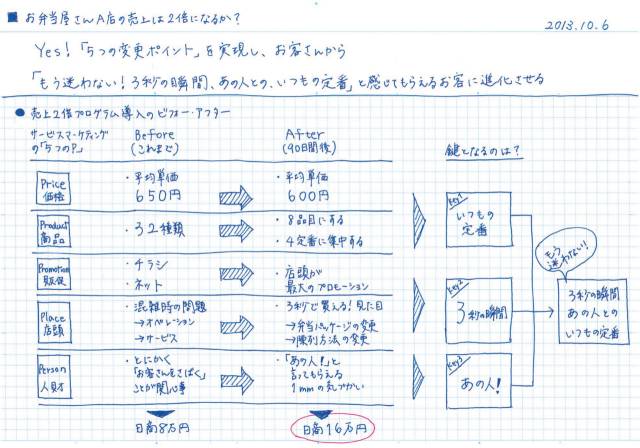 ■ お弁当屋さんA店の売上は2倍になるか？
2013.10.6
Yes!「5つの変更ポイント」を実現し、お客さんから
「もう迷わない！3秒の瞬間、あの人との、いつもの定番」と感じてもらえるお客に進化させる
● 売上2倍プログラム導入のビフォー・アフター
サービスマーケティングの「5つのP」
Before
(これまで)
After
(90日間後)
鍵となるのは？
Price
価格
・平均単価
650円
・平均単価
600円
Key1
いつもの
定番
Product
商品
・32種類
・8品目にする
・4定番に集中する
Promotion
販促
・チラシ
・ネット
・店頭が
最大のプロモーション
Key2
3秒の瞬間
もう
迷わない!
3秒の瞬間
あの人との
いつもの定番
Place
店頭
・混雑時の問題
→オペレーション
→サービス
・3秒で買える！見た目
→弁当パッケージの変更
→陳列方法の変更
Person
人財
・とにかく
「お客さんをさばく」
ことが関心事
・「あの人！」と
言ってもらえる
1mmの気づかい
Key3
あの人！
日商8万円
日商16万円